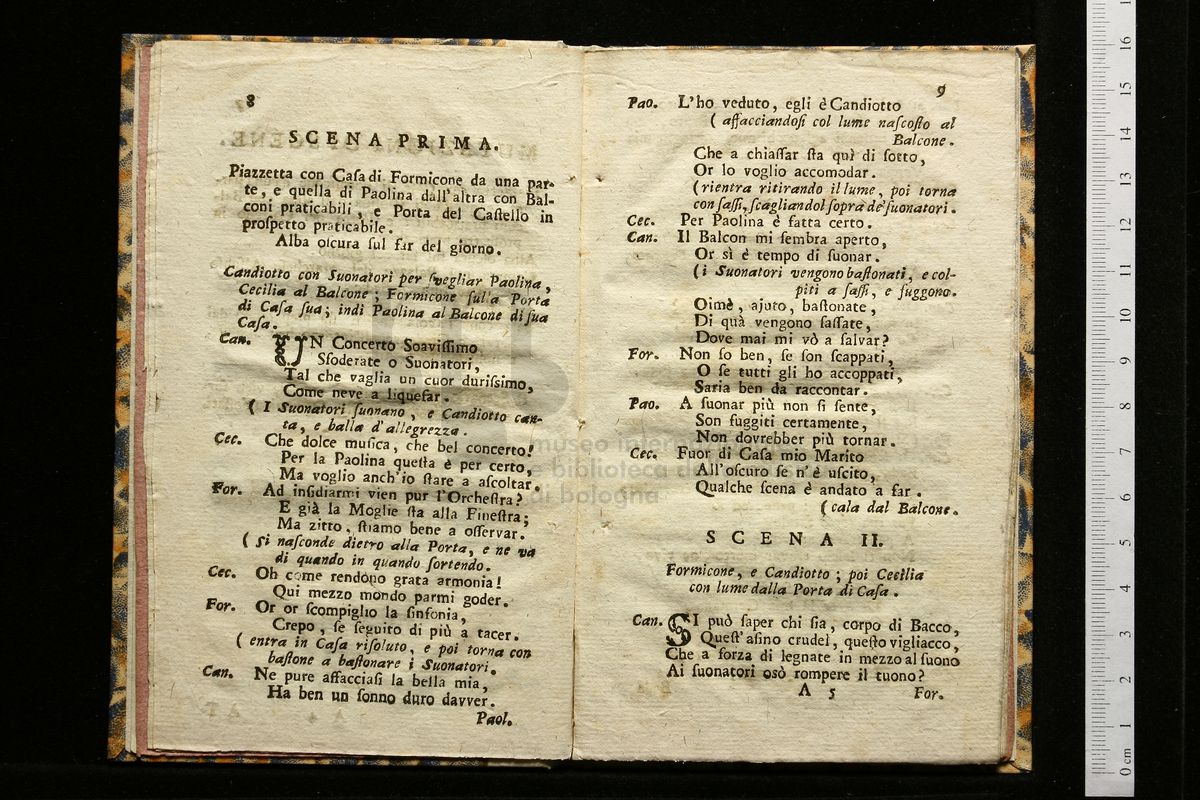 8
SCENA PRIMA.
Piazzetta con Caſa di Formicone da una par-
te, e quella di Paolina dall'altra con Bal-
coni praticabili, e Porta del Caſtello in
proſpetto praticabile.
Alba oſcura ſul far del giorno.
Candiotto con Suonatori per ſvegliar Paolina,
Cecilia al Balcone; Formicone ſulla Porta
di Caſa ſua; indi Paolina al Balcone di ſua
Caſa.
Can. UN Concerto Soaviſſimo
Sfoderate o Suonatori,
Tal che vaglia un cuor duriſſimo,
Come neve a liquefar.
( I Suonatori ſuonano, e Candiotto can-
ta, e balla d'allegrezza.
Cec. Che dolce muſica, che bel concerto!
Per la Paolina queſta è per certo,
Ma voglio anch'io ſtare a aſcoltar.
For. Ad inſidiarmi vien pur l'Orcheſtra?
E già la Moglie ſta alla Fineſtra;
Ma zitto, ſtiamo bene a oſſervar.
( ſi naſconde dietro alla Porta, e ne va
di quando in quando ſortendo.
Cec. Oh come rendono grata armonia!
Qui mezzo mondo parmi goder.
For. Or or ſcompiglio la ſinfonia,
Crepo, ſe ſeguito di più a tacer.
( entra in Caſa riſoluto, e poi torna con
baſtone a baſtonare i Suonatori.
Can. Ne pure affacciaſi la bella mia,
Ha ben un ſonno duro davver.
Paol.
9
Pao. L'ho veduto, egli è Candiotto
( affacciandoſi col lume naſcoſto al
Balcone.
Che a chiaſſar ſta quì di ſotto,
Or lo voglio accomodar.
(rientra ritirando il lume, poi torna
con ſaſſi, ſcagliandol ſopra de' ſuonatori.
Cec. Per Paolina è fatta certo.
Can. Il Balcon mi ſembra aperto,
Or sì è tempo di ſuonar.
(i Suonatori vengono baſtonati, e col-
piti a ſaſſi, e fuggono.
Oimè, ajuto, baſtonate,
Di quà vengono ſaſſate,
Dove mai mi vò a ſalvar?
For. Non ſo ben, ſe ſon ſcappati,
O ſe tutti gli ho accoppati,
Saria ben da raccontar.
Pao. A ſuonar più non ſi ſente,
Son fuggiti certamente,
Non dovrebber più tornar.
Cec. Fuor di Caſa mio Marito
All'oſcuro ſe n'è uſcito,
Qualche ſcena è andato a far.
(cala dal Balcone.
SCENA II.
Formicone, e Candiotto; poi Cecilia
con lume dalla Porta di Caſa.
Can. SI può ſaper chi ſia, corpo di Bacco,
Queſt'aſino crudel, queſto vigliacco,
Che a forza di legnate in mezzo al ſuono
Ai ſuonatori osò rompere il tuono?
A 5 For.
museo inter
e biblioteca de
di bologna
0 cm 1 2 3 4 5 6 7 8 9 10 11 12 13 14 15 16